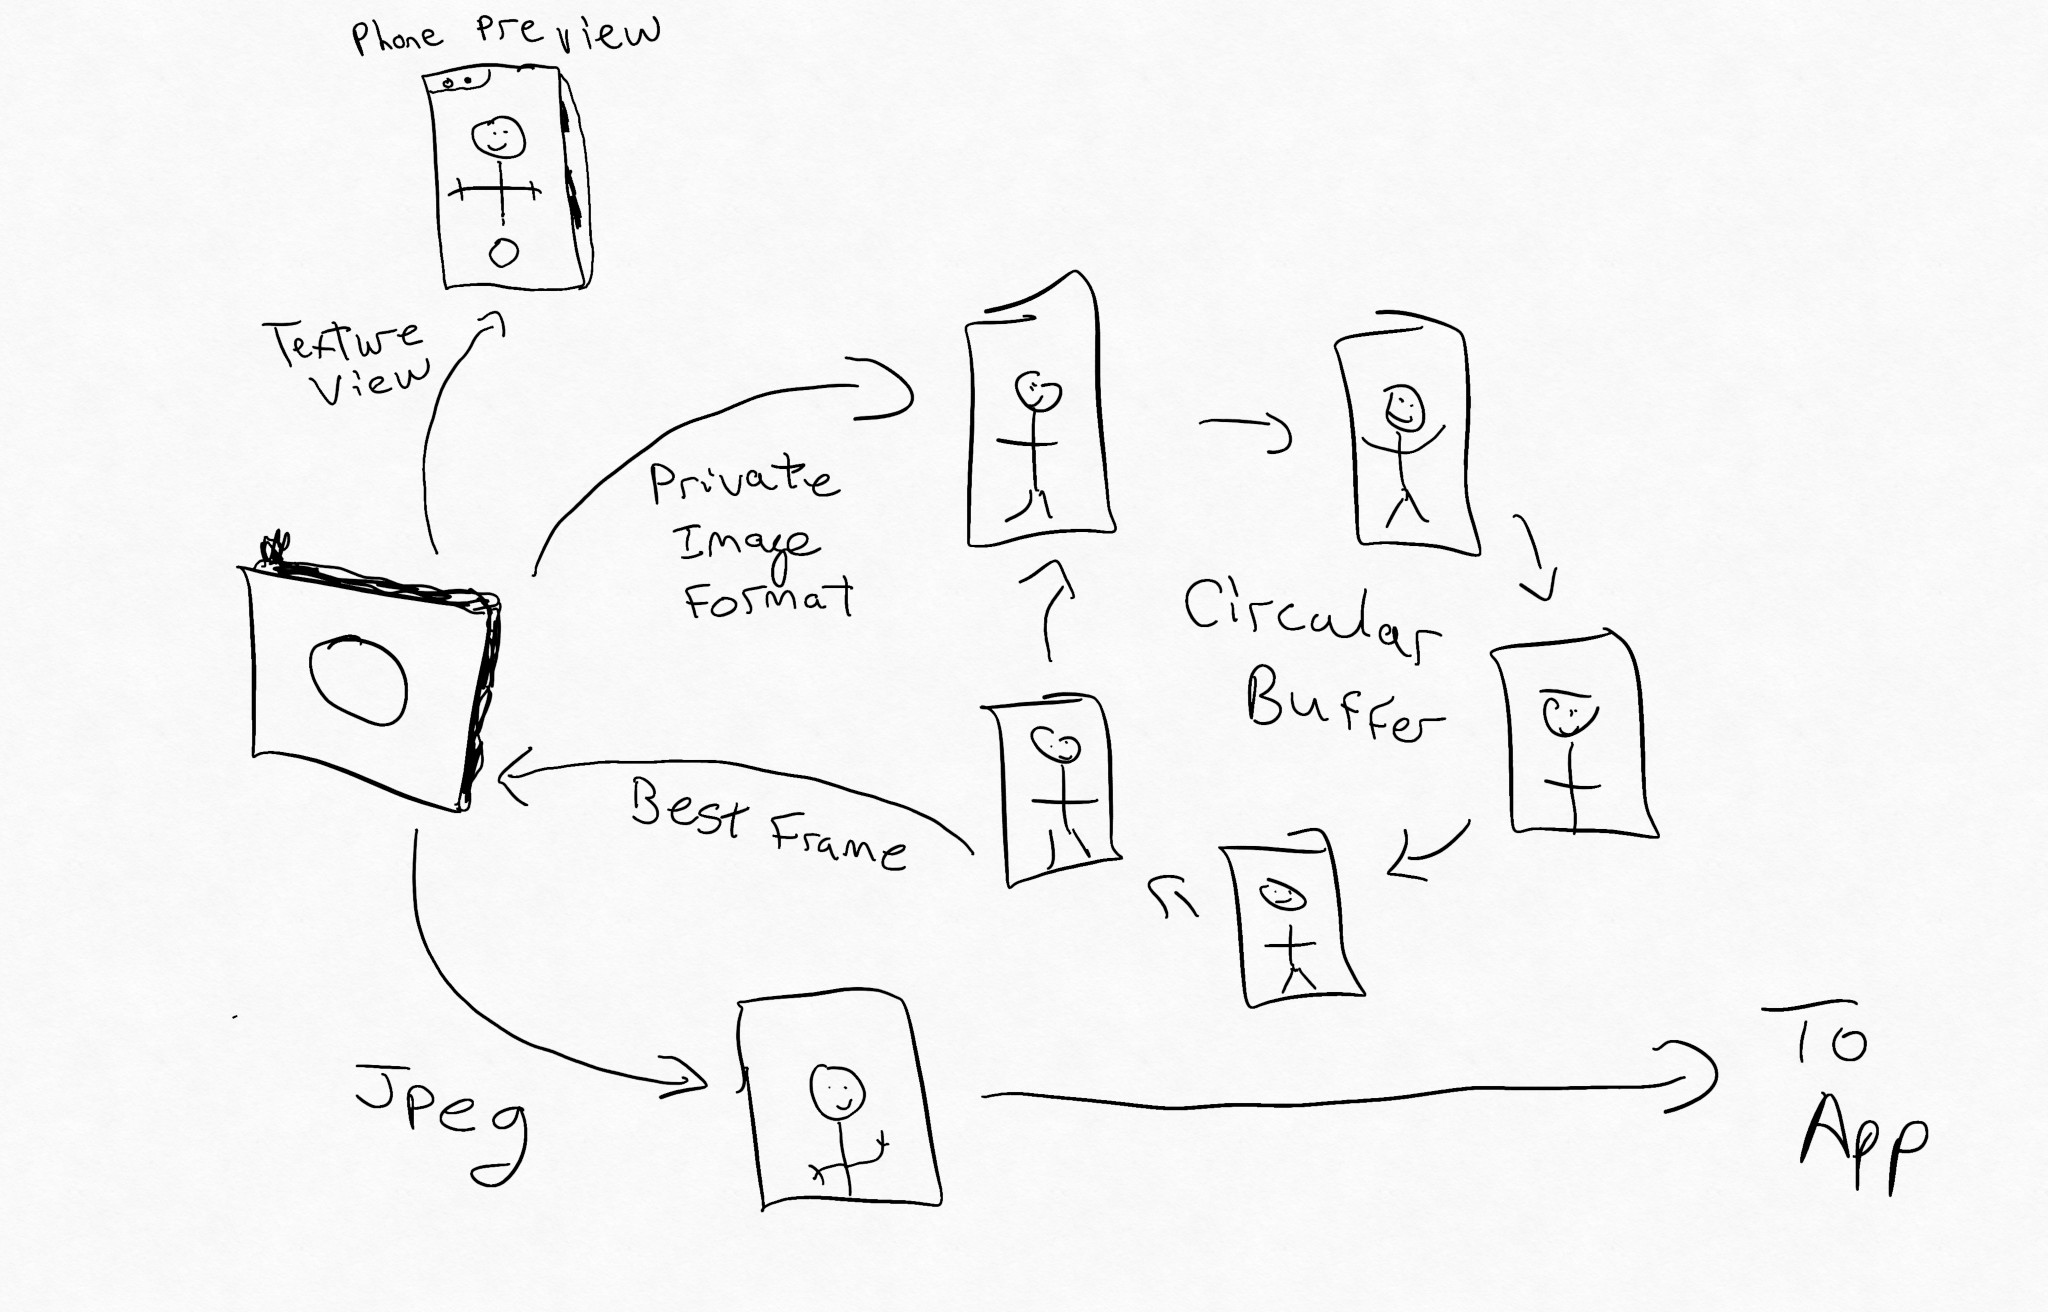 Phone Preview
Texture
View
Private
Image
Format
Circular
Buffer
Best Frame
Jpeg
To
App